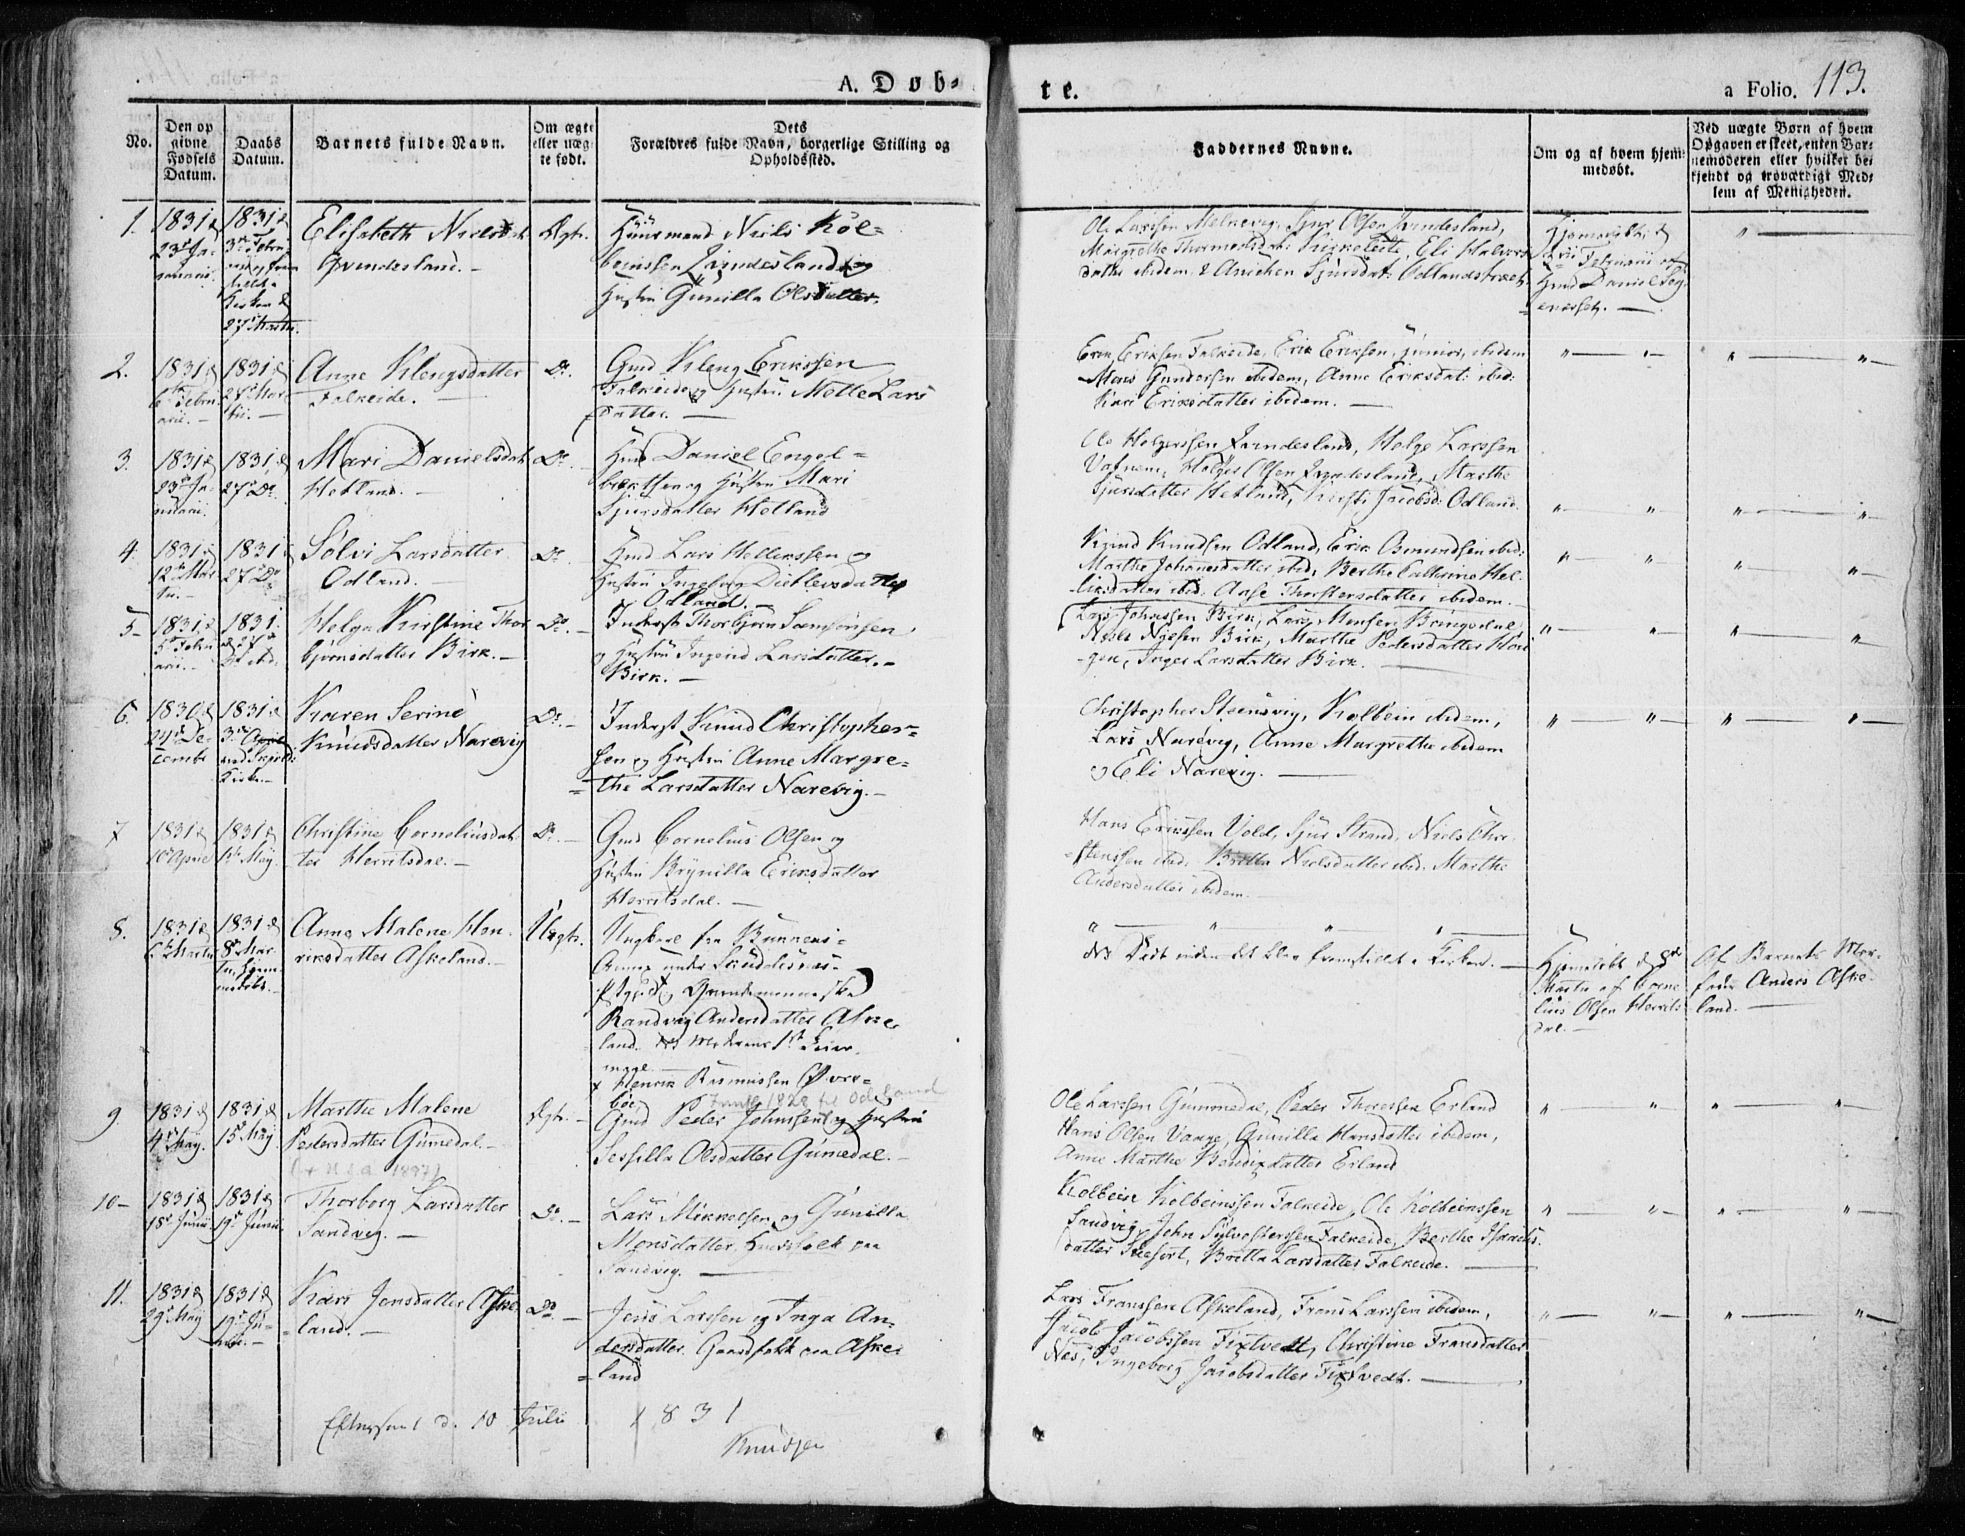 A. Døb=
te.
a Folio. 113.
No.
Den op
givne
Fødsels
Datum.
Daabs
Datum.
Barnets fulde Navn.
Om ægte
eller uæg
te født.
Dets
Forældres fulde Navn, borgerlige Stilling og
Opholdssted.
Faddernes Navne.
Om og af hvem hjem=
medøbt.
Ved uægte Børn af hvem
Opgaven er skeet, enten Bar=
nemoderen eller hvilket be=
kjendt og troværdigt Med=
lem af Menigheden.
1.
1831 d
23d Ja-
nuarii.
1831 d
3die Febru
Kirken d
27d Martii.
Elisabeth Nielsdat
Qvindesland. -
Ægte.
Huusmand Niels Kol-
beinssen Qvindesland og
Hustru Gunilla Olsdatter.
Ole Larssen Qvindesland,
Margrethe Kirkeleite, Eli Halvors
datter ibidem & Anichen Sjursdat: Odlandstræet
Hjemmedøbt d
3die Februarii af
Hmd Daniel
2.
1831 d
6te Febru
arii. -
1831 d
27d Mar
tii. -
Anne Klengsdatter
Falkeide. -
Do.
Gmd Kleng Erikssen
Falkeide og Hustru Mette Lars
datter. -
Erik Eriksen Falkeide, Erik Eriksen junior, ibidem
Mons Gundersen ibidem, Anne Eriksdat: ibid:
Kari Eriksdatter ibidem. -
3.
1831 d
23d Ja-
nuarii.
1831 d
27d Do
Mari Danielsdat
Hetland. -
Do. -
Hmd Daniel Engel=
brætthen og Hustru Mari
Sjursdatter Hetland
Ole Holgerssen Qvindesland, Helge Larssen
Holger Olsen Qvindesland, Marthe
Sjursdatter Hetland, Kirsti Jacobsd: Odland.
4.
1831 d
12te Mar
tii. -
1831 d
27d Do
Sølvi Larsdatter
Odland. -
Do. -
Hmd Lars Hellikssen og
Hustru Ingeborg Ditlevsdatter
Odland. -
Knud Knudsen Odland, Erik Osmundsen ibid:
Marthe Johannesdatter ibid, Berthe Cathrine Hel-
liksdatter ibid. Aase Thorstensdatter ibidem.
5 -
1831 d
5te Febru
arii. -
1831.
Helga Kirstine Thor
bjørnsdatter Birk. -
Do. -
Inderst Thorbjørn Samsonsen
og Hustru Ingerid Larsdatter. -
Birk. -
Lars Johnssen Birk, Lars Monsen Bringedal,
Niels Nielsen Birk, Marthe Pedersdatter
Inger Larsdatter Birk. -
6.
1830 d
24d De-
cembr
1831 d
3die April
ved Skjold
Kirke. -
Karen Serine
Knudsdatter Narevig
Do. -
Inderst Knud Christopher=
sen og Hustru Anne Margre=
the Larsdatter Narevig. -
Christopher Steensvig, Kolbein ibidem,
Lars Narevig, Anne Margrethe ibidem
og Eli Narevig. -
7
1831 d
10d April
1831 d
May.
Christine Corneliusdat
ter Herritsdal. -
Do. -
Gmd Cornelius Olsen og
Hustru Brynilla Eriksdatter
Herritsdal. -
Hans Erikssen Vold, Sjur Strand, Niels Chri
stenssen ibid, Britta Nielsdatter ibid. Marthe
Andersdatter ibidem. -
8.
1831 d
6te Martii
1831 d
8d Mar-
tii hjem
medøbt. -
Anna Malene Hen-
riksdatter Askeland. -
Uægte.
Ungkarl fra
Annex under Skudesnæs=
Pstgjeld og Qvindemenneske
Randveig Andersdatter Aske
land. NB Moderens 1ste Leier
maal
x Henrik Rasmussen Øvre=
bøe, 1828 til Odland
NB Død inden det blev fremstillet i Kirken. -
Hjemmedøbt d 8d
Martii af Corne
lius Olsen Herrits
dal. -
Af Barnets Mor-
fader Anders Aske-
land. -
9.
1831 d
4d May.
1831 d
15d May.
Marthe Malene
Pedersdatter Gumedal. -
(+ U.S.A 1897)
Ægte. -
Gmd Peder Johnsen og Hustru
Sessilla Olsdatter Gumedal. -
Ole Larssen Gummedal, Peder Thorssen Erland
Hans Olsen Vaage, Gunilla Hansdatter ibidem,
Anne Marthe Bendixdatter Erland
10 -
1831 d
18d Junii
1831 d
19d Junii
Thorborg Larsdatter
Sandvig. -
Do. -
Lars Mikkelsen og Gunilla
Monsdatter, Huusfolk paa
Sandvig. -
Kolbein Kolbeinssen Falkeide, Ole Kolbeinssen
Sandvig, John Sylvesterssen Falkeide, Berthe Isaachs
datter Britta Larsdatter Falkeide. -
11.
1831 d
29d May
1831 d
19d Ju-
nii. -
Kari Jensdatter Aske
land. -
Do. -
Jens Larssen og Inga An-
dersdatter. Gaardfolk paa Aske
land
Lars Franssen Askeland, Frans Larssen ibidem,
Jacob Jacobssen Tixtvedt, Christine Fransdatter
Nes, Ingeborg Jacobsdatter Tixtvedt. -
Efterseet d. 10 Julii 1831
Knudsen